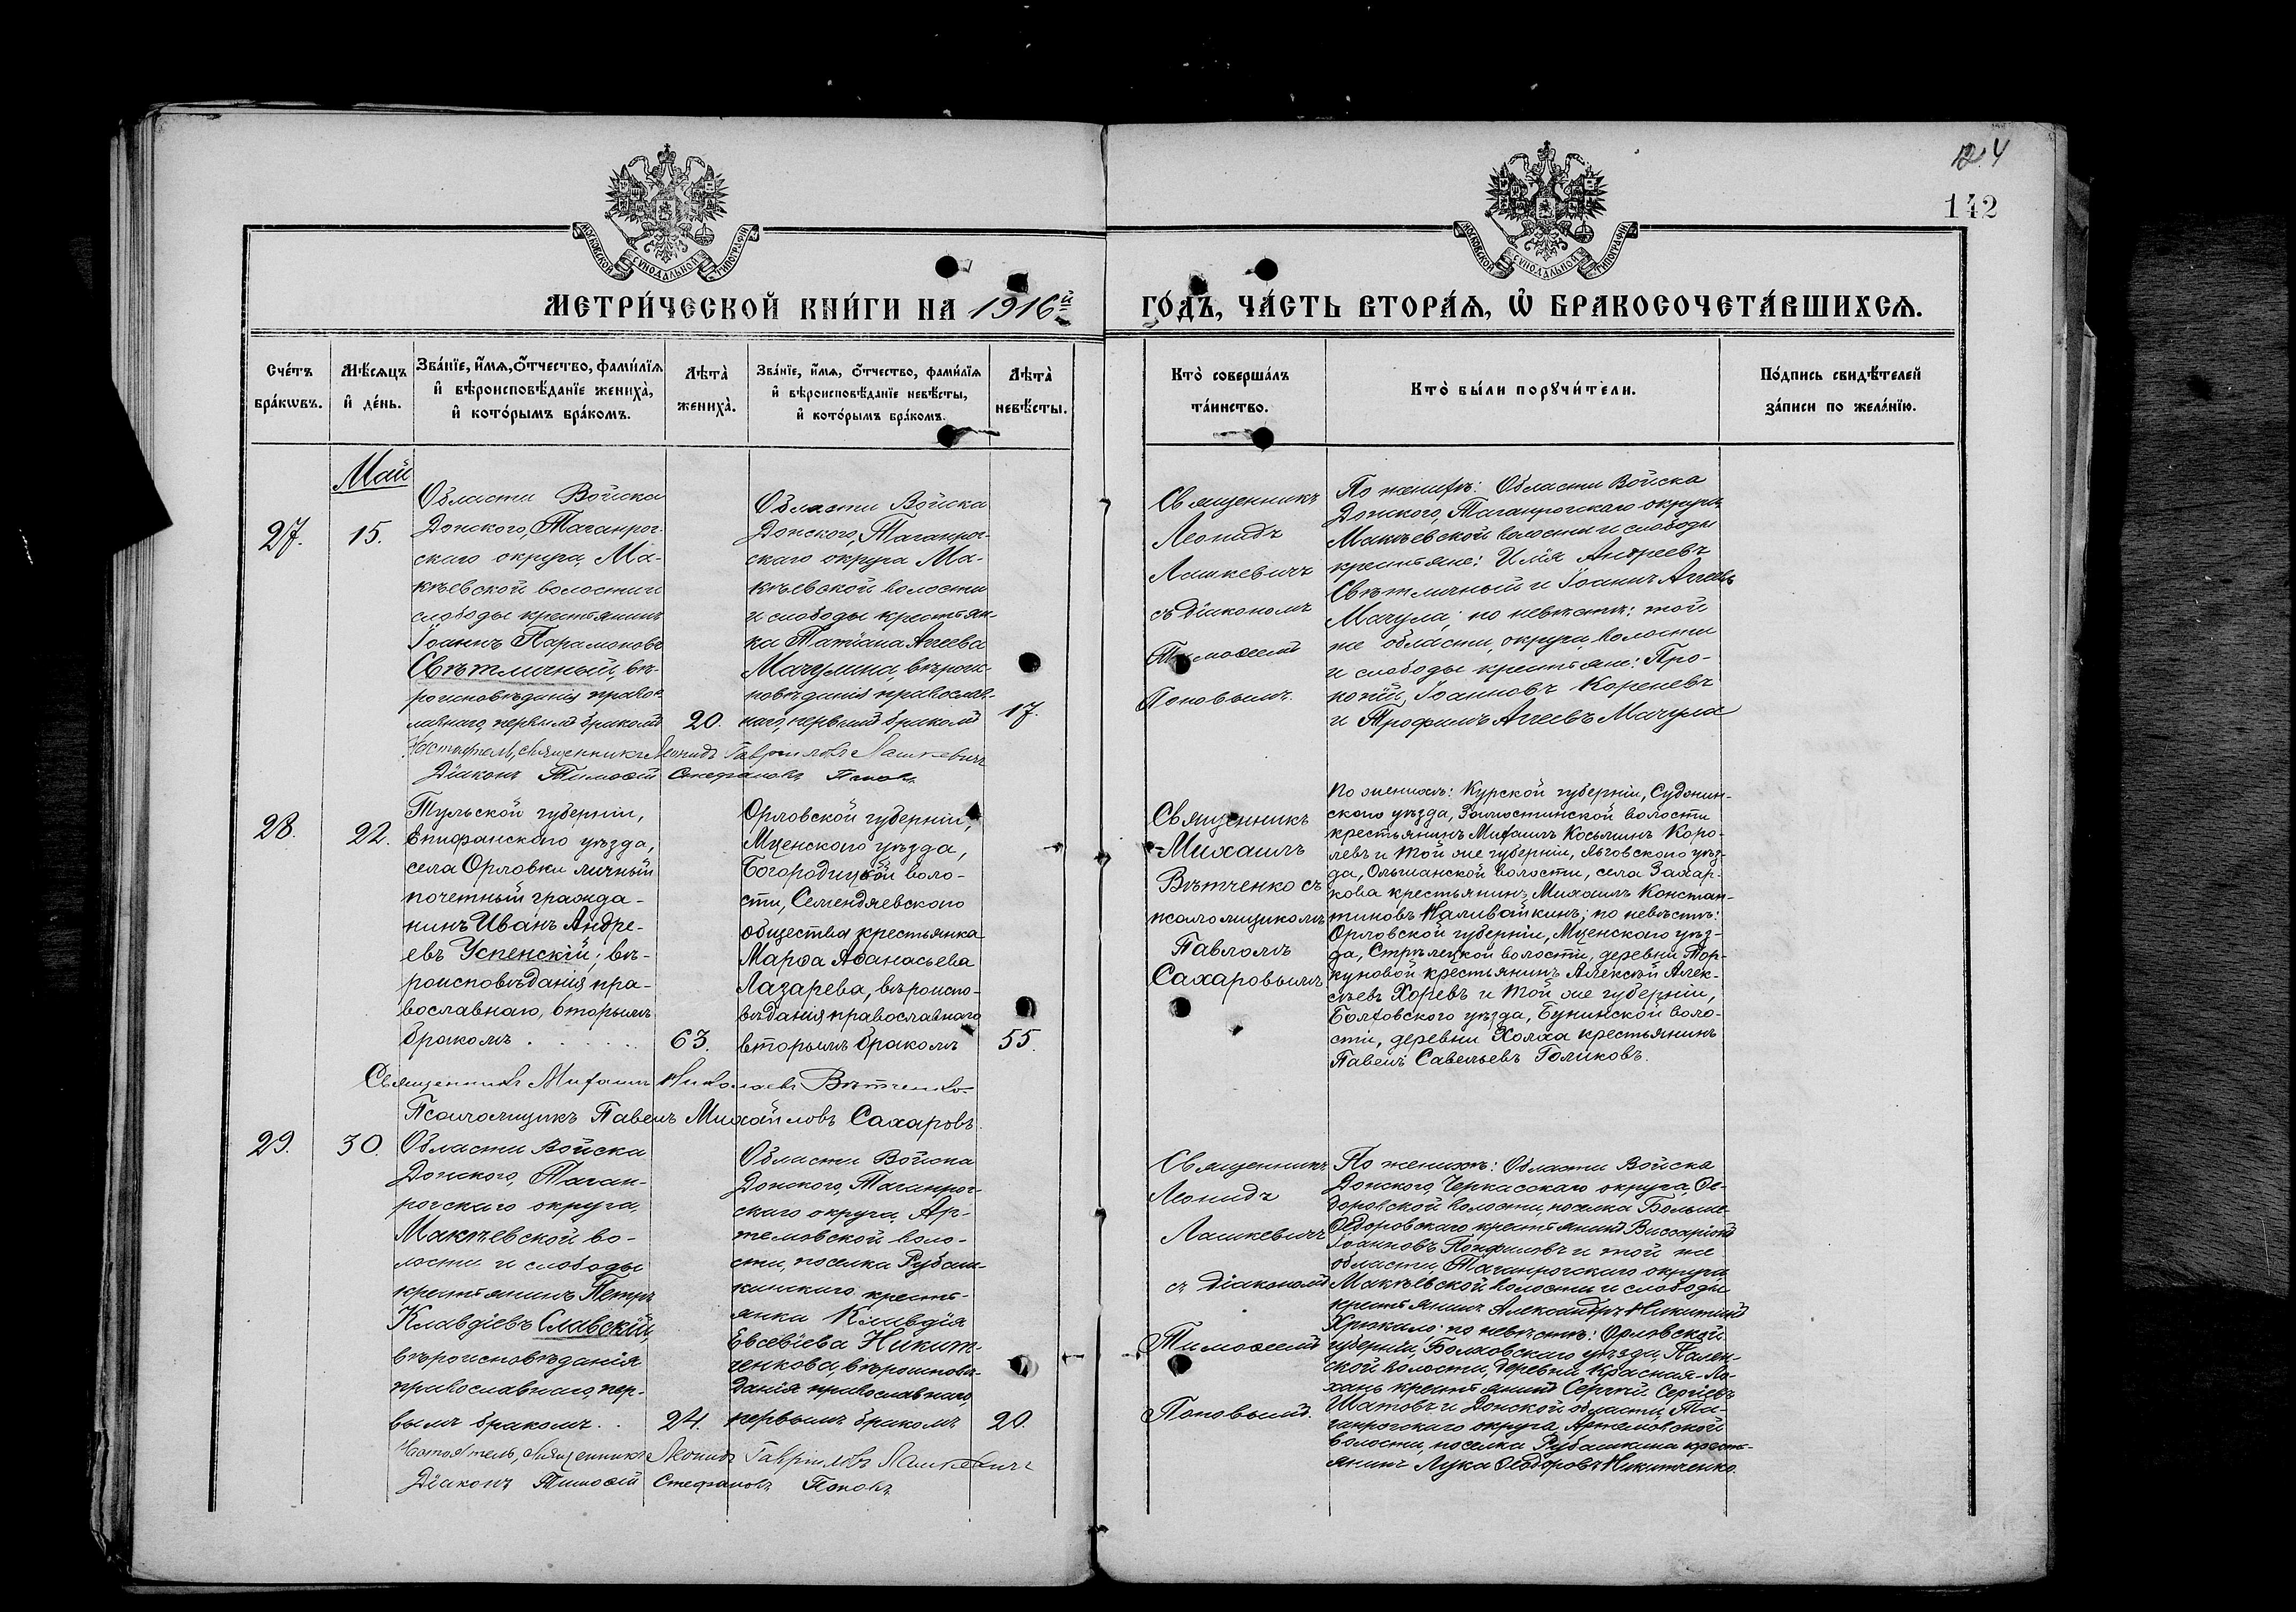 124
142
МОСКОВСКОЙ СѴНОДАЛЬНОЙ ТИПОГРАФІИ
МОСКОВСКОЙ СѴНОДАЛЬНОЙ ТИПОГРАФІИ
МЕТРИ́ЧЕСКОЙ КНИ́ГИ НА 1916й
ГО́ДЪ, ЧА́СТЬ ВТОРА́Ѧ, Ѡ҆ БРАКОСОЧЕТА́ВШИХСѦ.
Сче́тъ
бра́кѡвъ.
Мѣ́сѧцъ
и҆ де́нь.
Зва́нїе, и҆́мѧ, ѻ҆́тчество, фами́лїѧ
и҆ вѣроисповѣ́данїе жениха̀,
и҆ кото́рымъ бра́комъ.
Лѣта̀
жениха̀.
Зва́нїе, и҆́мѧ, ѻ҆́тчество, фами́лїѧ
и҆ вѣроисповѣ́данїе невѣ́сты,
и҆ кото́рымъ бра́комъ.
Лѣта̀
невѣ́сты.
Кто̀ соверша́лъ
та́инство.
Кто̀ бы́ли порꙋчи́тели.
По́дпись свидѣ́телей
за́писи по жела́нїю.
Май
27.
15.
Области Войска
Донского, Таганрог-
скаго округа, Ма-
кѣевской волости и
слободы крестьянинъ
Іоаннъ Парамоновъ
Свѣтличный, вѣ-
роисповѣданія правос-
лавнаго, первымъ бракомъ
20.
Области Войска
Донского, Таганрог-
скаго округа Ма-
кѣевской волости
и слободы крестьян-
ка Татіана Агеева
Мачулина, вѣроис-
повѣданія православ-
наго, первымъ бракомъ
17.
Священникъ
Леонидъ
Лашкевичъ
съ діакономъ
Тимоѳеемъ
Поповымъ.
По женихѣ: Области Войска
Донского, Таганрогскаго округа,
Макѣевской волости и слободы
крестьяне: Илія Андреевъ
Свѣтличный и Іоаннъ Агеевъ
Мачула; по невѣстѣ: той
же области, округа, волости
и слободы крестьяне: Про-
копій Іоанновъ Кореневъ
и Трофимъ Агеевъ Мачула
Настоятель, священникъ Леонидъ Гавріиловъ Лашкевичъ
Діаконъ Тимоѳей Стефановъ Поповъ
28.
22.
Тульской губерніи,
Епифанскаго уѣзда,
села Орловки личный
почетный гражда-
нинъ Иванъ Андре-
евъ Успенскій; вѣ-
роисповѣданія пра-
вославнаго, вторымъ
бракомъ . . . . . .
63.
Орловской губерніи,
Мценскаго уѣзда,
Богородицкой воло-
сти, Семендяевскаго
общества крестьянка
Марѳа Аѳанасьева
Лазарева, вѣроиспо-
вѣданія православнаго
вторымъ бракомъ
55.
Священникъ
Михаилъ
Вѣтченко съ
псаломщикомъ
Павломъ
Сахаровымъ
По женихѣ: Курской губерніи, Суджин-
скаго уѣзда, Замостинской волости
крестьянинъ Михаилъ Косьминъ Коро-
левъ и той же губерніи, Льговскаго уѣз-
да, Ольшанской волости, села Захар-
кова крестьянинъ Михаилъ Констан-
тиновъ Наливайкинъ; по невѣстѣ:
Орловской губерніи, Мценскаго уѣз-
да, Стрѣлецкой волости, деревни Тор-
куновой крестьянинъ Алексѣй Алек-
сѣевъ Хоревъ и той же губерніи,
Болховского уѣзда, Бунинской воло-
сти, деревни Холха крестьянинъ
Павелъ Савельевъ Голиковъ.
Священникъ Михаилъ Николаевъ Вѣтченко
Псаломщикъ Павелъ Михайловъ Сахаровъ.
29.
30.
Области Войска
Донского, Таган-
рогскаго округа,
Макѣевской во-
лости и слободы
крестьянинъ Петръ
Клавдіевъ Славскій,
вѣроисповѣданія
православнаго, пер-
вымъ бракомъ . .
24.
Области Войска
Донского, Таганрог-
скаго округа, Ар-
темовской воло-
сти, поселка Рубаш-
кинскаго кресть-
янка Клавдія
Евсевіева Никит-
ченкова, вѣроисповѣ-
данія православнаго,
первымъ бракомъ
20.
Священникъ
Леонидъ
Лашкевичъ
съ діакономъ
Тимоѳеемъ
Поповымъ.
По женихѣ: Области Войска
Донского, Черкасскаго округа, Ѳе-
доровской волости, поселка Больше-
Ѳедоровскаго крестьянинъ Виссаріонъ
Іоанновъ Панфиловъ и той же
области, Таганрогскаго округа
Макѣевской волости и слободы
крестьянинъ Александръ Никитинъ
Хрюкало; по невѣстѣ: Орловской
губерніи, Болховскаго уѣзда,
ской волости, деревни Красная-
крестьянинъ Сергѣй Сергіевъ
Шатовъ и Донской области, Та-
ганрогскаго округа, Артемовской
волости, поселка Рубашкина кресть-
янинъ Лука Ѳеодоровъ Никитченко.
Настоятель, священникъ Леонидъ Гавріиловъ Лашкевичъ
Діаконъ Тимоѳей Стефановъ Поповъ